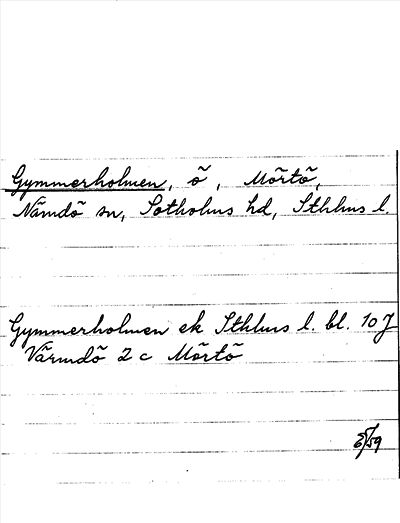 Gymmerholmen, ö, Mörtö,
Nämdö sn, Sotholms hd, Sthlms l.
Gymmerholmen ek Sthlms l. bl. 10 J
Värmdö 2 c Mörtö
/59